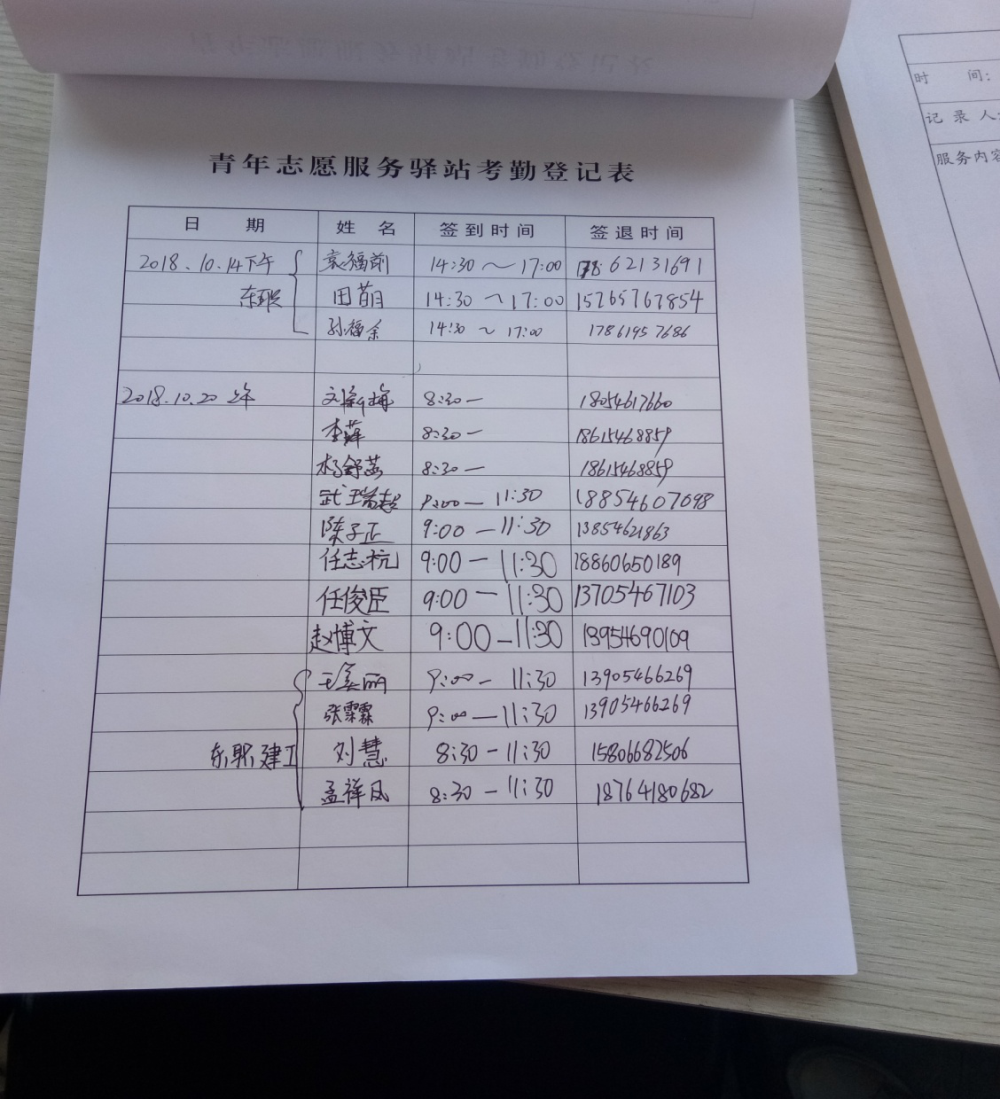 青年志愿服务驿站考勤登记表
日 期 姓 名 签到时间 签退时间
2018.10.14下午 袁福前 14:30～17:00 17862131691
田萌 14:30～17:00 15265767854
孙福余 14:30～17:00 17861957686
2018.10.20上午 刘新梅 8:30— 18054617660
李萍 8:30— 18615468859
杨舒荔 8:30— 18615468859
武瑞超 9:00—11:30 18854607098
陈子正 9:00—11:30 13854621863
任志杭 9:00—11:30 18860650189
任俊臣 9:00—11:30 13705467103
赵博文 9:00—11:30 13954690109
王美丽 9:00—11:30 13905466269
张霖霖 9:00—11:30 13905466269
东职建工 刘慧 8:30—11:30 15806682506
孟祥凤 8:30—11:30 18764180682
时 间:
记 录 人:
服务内容